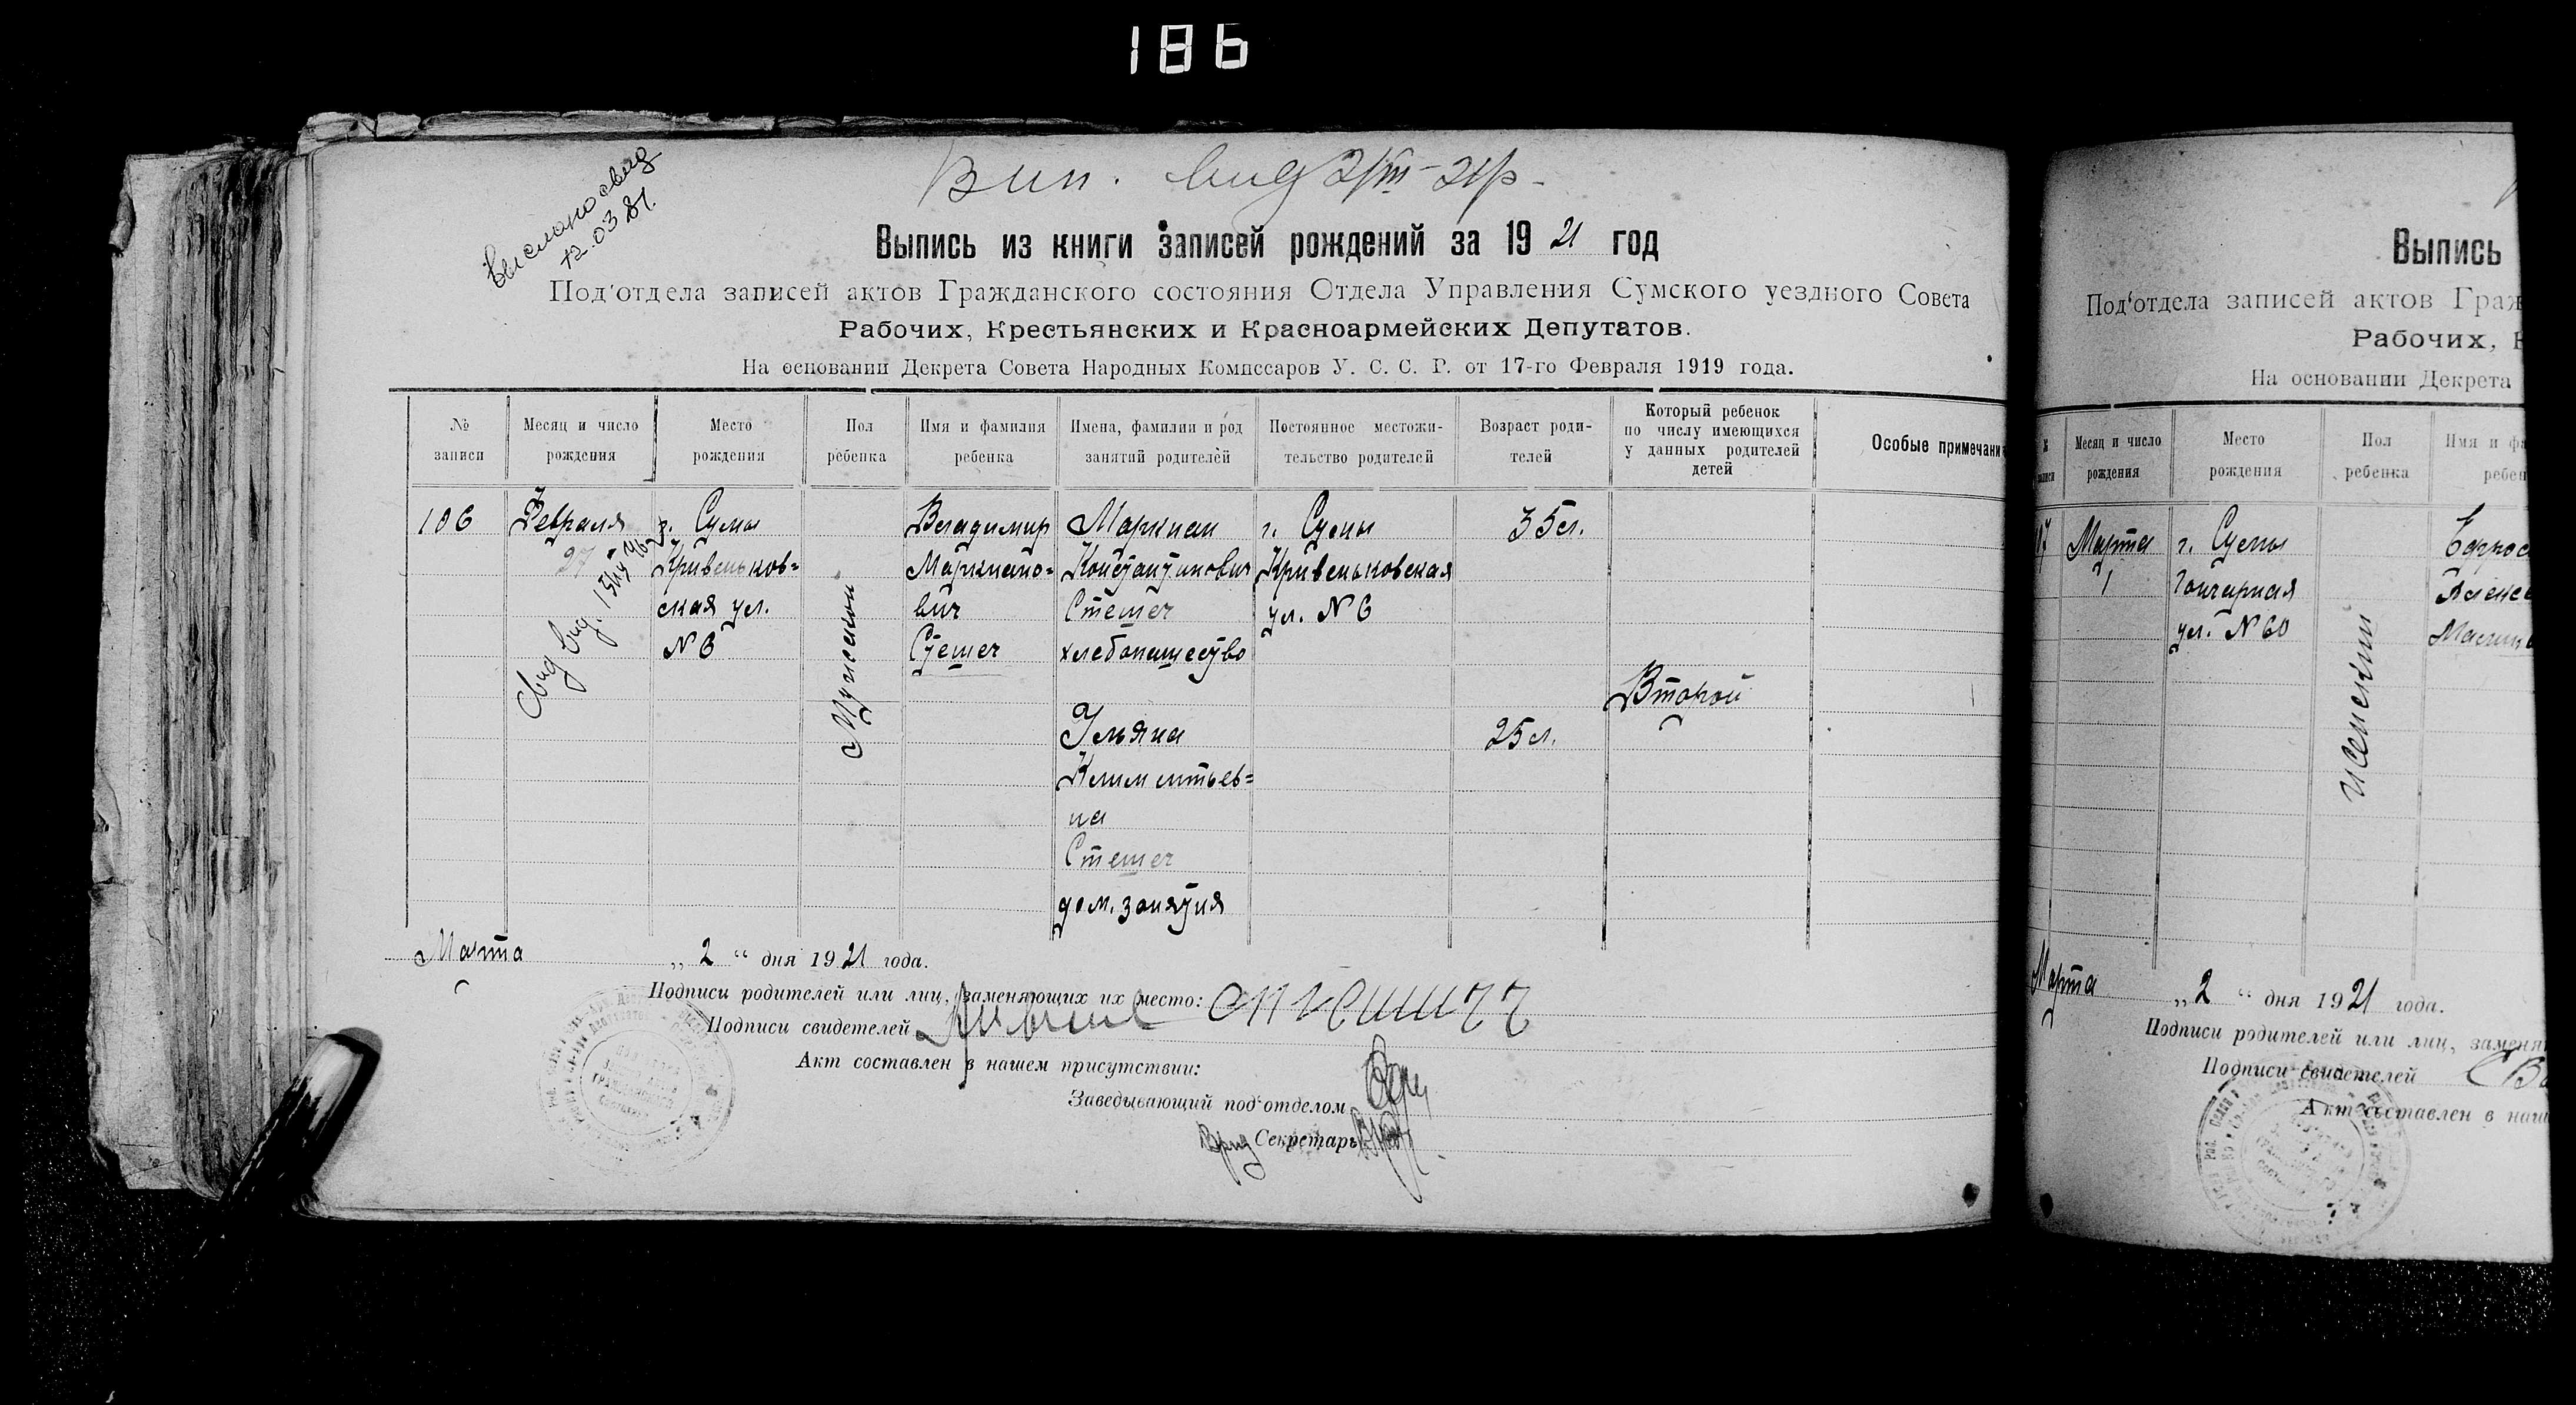 186
Выслано свид
12.03.81.
Вып. вид 2/III-21р.
Выпись из книги записей рождений за 1921 год
Под'отдела записей актов Гражданского состояния Отдела Управления Сумского уездного Совета
Рабочих, Крестьянских и Красноармейских Депутатов.
На основании Декрета Совета Народных Комиссаров У. С. С. Р. от 17-го Февраля 1919 года.
№ записи
Месяц и число рождения
Место рождения
Пол ребенка
Имя и фамилия ребенка
Имена, фамилии и род занятий родителей
Постоянное местожительство родителей
Возраст родителей
Который ребенок по числу имеющихся у данных родителей детей
Особые примечани
106
Февраля
27
г. Сумы
Кривеньков=
ская ул.
N 6
Мужской
Владимир
Маркиано=
вич
Стешеч
Маркиан
Константинович
Стешеч
хлебопашество
г. Сумы
Кривеньковская
ул. N 6
35 л.
Ульяна
Климентьев=
на
Стешеч
дом. занятия
25 л.
Второй
Марта „ 2 “ дня 1921 года.
Подписи родителей или лиц, заменяющих их место:
Подписи свидетелей
Акт составлен в нашем присутствии:
Заведывающий под'отделом
Врид Секретарь
Выпись
Под'отдела записей актов Граж
Рабочих, К
На основании Декрета
Месяц и число рождения
Место рождения
Пол ребенка
Имя и фа
ребен
Марта
1
г. Сумы
Гончарная
ул. N 60
женский
Марта „ 2 “ дня 1921 года.
Подписи родителей или лиц, заменя
Подписи свидетелей
Акт составлен в наш